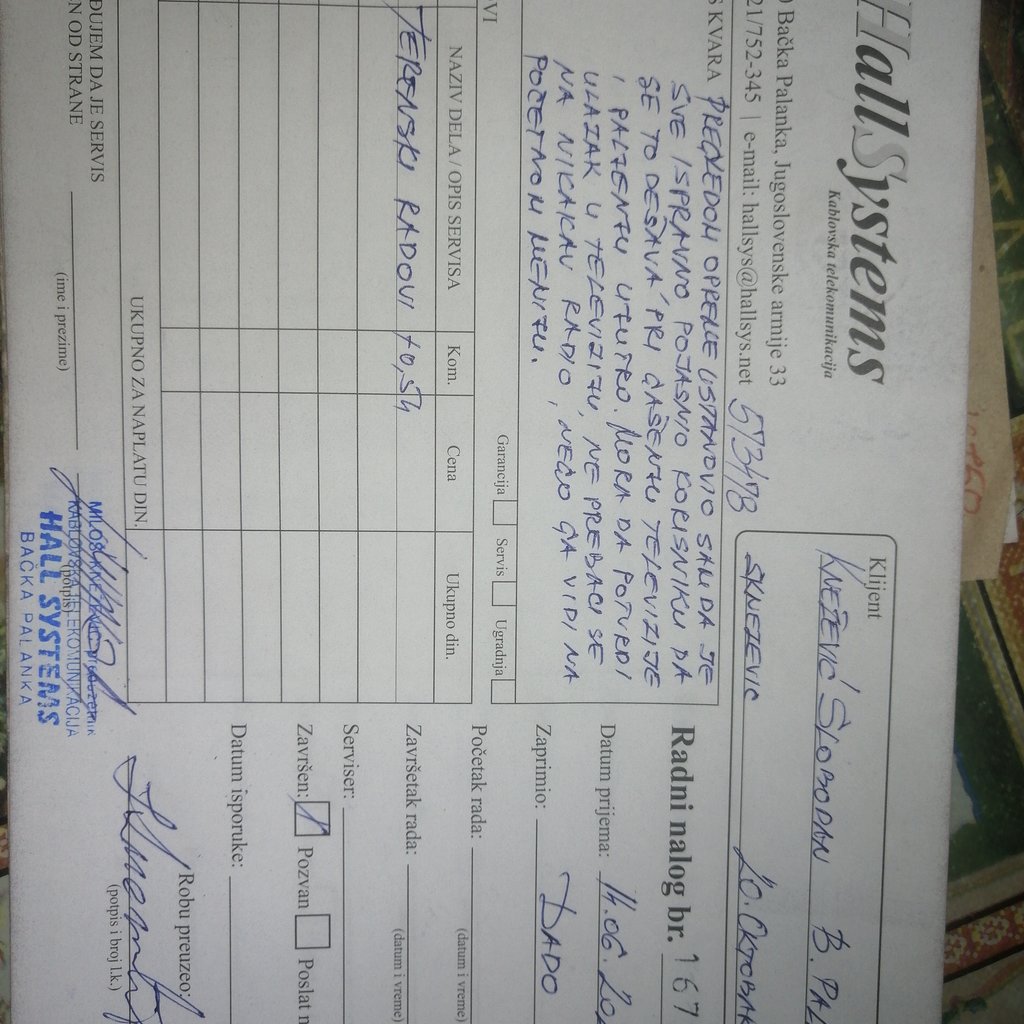 HallSystems
Kablovska telekomunikacija
Bačka Palanka, Jugoslovenske armije 33
21/752-345 | e-mail: hallsys@hallsys.net
573/78
Klijent
KNEŽEVIĆ SLOBODAN B. PAL
SKNEZEVIC 20. OKTOBAR
KVARA PREGLEDOM OPREME USTANOVIO SAM DA JE
SVE ISPRAVNO POJASNIO KORISNIKU DA
SE TO DEŠAVA PRI GAŠENJU TELEVIZIJE
I PALJENJU UJUTRO. MORA DA POTVRDI
ULAZAK U TELEVIZIJU, NE PREBACI SE
NA NIKAKAV RADIO, NEGO GA VIDI NA
POČETNOM MENIJU.
VI
Garancija Servis Ugradnja
NAZIV DELA / OPIS SERVISA Kom. Cena Ukupno din.
TERENSKI RADOVI
UKUPNO ZA NAPLATU DIN.
ĐUJEM DA JE SERVIS
N OD STRANE
(ime i prezime)
(potpis)
KABLOVSKA TELEKOMUNIKACIJA
HALL SYSTEMS
BAČKA PALANKA
Radni nalog br. 167
Datum prijema: 14.06.
Zaprimio: DADO
Početak rada:
(datum i vreme)
Završetak rada:
(datum i vreme)
Serviser:
Završen: Pozvan Poslat
Datum isporuke:
Robu preuzeo:
(potpis i broj l.k.)